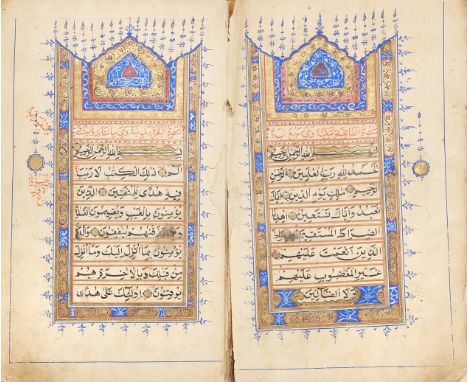 سورة الفاتحة مكية وهي سبع
بسم الله الرحمن الرحيم
الحمد لله رب العلمين الرحمن
الرحيم ملك يوم الدين اياك
نعبد واياك نستعين اهدنا
الصراط المستقيم صراط
الذين انعمت عليهم
غير المغضوب عليهم
ولا الضالين
سورة البقرة مدنية وهي
بسم الله الرحمن الرحيم
الم ذلك الكتب لا ريب
فيه هدى للمتقين الذين
يؤمنون بالغيب ويقيمون الصلوة
ومما رزقنهم ينفقون والذين
يؤمنون بما انزل اليك وما انزل
من قبلك وبالاخرة هم
يوقنون اولئك على هدى